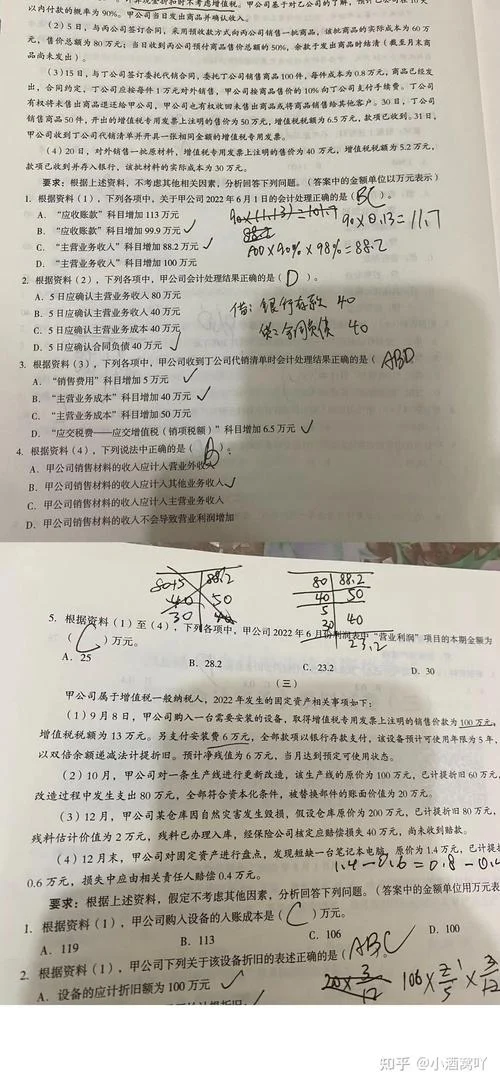 以内付款的概率为90%。甲公司当日发出商品并确认收入。
(2)5日,与丙公司签订合同,采用预收款方式向丙公司销售一批商品,该批商品的实际成本为60万
元,售价总额为80万元;当日收到丙公司预付商品售价总额的50%,余款于发出商品时结清(截至月末商
品尚未发出)。
(3)15日,与丁公司签订委托代销合同,委托丁公司销售商品100件,每件成本为0.8万元,商品已经发
出,合同约定,丁公司应按每件1万元对外销售,甲公司按商品售价的10%向丁公司支付手续费。丁公司
有权将未售出商品退还给甲公司,甲公司也有权收回未售出商品或将商品销售给其他客户。30日,丁公司
销售商品50件,开出的增值税专用发票上注明的售价为50万元,增值税税额为6.5万元,款项已收到。31日,
甲公司收到丁公司代销清单并开具一张相同金额的增值税专用发票。
(4)20日,对外销售一批原材料,增值税专用发票上注明的售价为40万元,增值税税额为5.2万元,
款项已收到并存入银行,该批材料的实际成本为30万元。
要求:根据上述资料,不考虑其他相关因素,分析回答下列问题。(答案中的金额单位以万元表示)
1. 根据资料(1),下列各项中,关于甲公司2022年6月1日的会计处理正确的是( BC )。
A. “应收账款”科目增加113万元
90×0.13=11.7
B. “应收账款”科目增加99.9万元
88.2
C. “主营业务收入”科目增加88.2万元
100×90%×98%=88.2
D. “主营业务收入”科目增加100万元
2. 根据资料(2),下列各项中,甲公司会计处理结果正确的是( D )。
A. 5日应确认主营业务收入80万元
B. 5日应确认主营业务收入40万元
借:银行存款 40
C. 5日应确认主营业务成本40万元
贷:合同负债 40
D. 5日应确认合同负债40万元
3. 根据资料(3),下列各项中,甲公司收到丁公司代销清单时会计处理结果正确的是( ABD
A. “销售费用”科目增加5万元
B. “主营业务成本”科目增加40万元
C. “主营业务成本”科目增加50万元
D. “应交税费——应交增值税(销项税额)”科目增加6.5万元
4. 根据资料(4),下列说法中正确的是( B )。
A. 甲公司销售材料的收入应计入营业外收入
B. 甲公司销售材料的收入应计入其他业务收入
C. 甲公司销售材料的收入应计入主营业务收入
D. 甲公司销售材料的收入不会导致营业利润增加
80+5 88.2
40 50
30 40
80 88.2
40 50
5
30 40
23.2
5. 根据资料(1)至(4),下列各项中,甲公司2022年6月份利润表中“营业利润”项目的本期金额为
( C )万元。
A. 25 B. 28.2 C. 23.2 D. 30
(三)
甲公司属于增值税一般纳税人,2022年发生的固定资产相关事项如下:
(1)9月8日,甲公司购入一台需要安装的设备,取得增值税专用发票上注明的销售价款为100万元,
增值税税额为13万元。另支付安装费6万元,全部款项以银行存款支付,该设备预计可使用年限为5年,
以双倍余额递减法计提折旧。预计净残值为6万元,当月达到预定可使用状态。
(2)10月,甲公司对一条生产线进行更新改造,该生产线的原价为100万元,已计提折旧60万元
改造过程中发生支出80万元,全部符合资本化条件,被替换部件的账面价值为20万元。
(3)12月,甲公司某仓库因自然灾害发生毁损,假设仓库原价为200万元,已计提折旧80万元,
残料估计价值为2万元,残料已办理入库,经保险公司核定应赔偿损失40万元,尚未收到赔款。
(4)12月末,甲公司对固定资产进行盘点,发现短缺一台笔记本电脑,原价为1.4万元,已计提
1.4-0.6=0.8-0.4
0.6万元,损失中应由相关责任人赔偿0.4万元。
要求:根据上述资料,假定不考虑其他因素,分析回答下列问题。(答案中的金额单位用万元表
1. 根据资料(1),甲公司购入设备的入账成本是( C )万元。
A. 119 B. 113 C. 106 D. 100
2. 根据资料(1),甲公司下列关于该设备折旧的表述正确的是( ABC
A. 设备的应计折旧额为100万元
20×3/12
106×2/5×3/12
知乎 @小酒窝吖